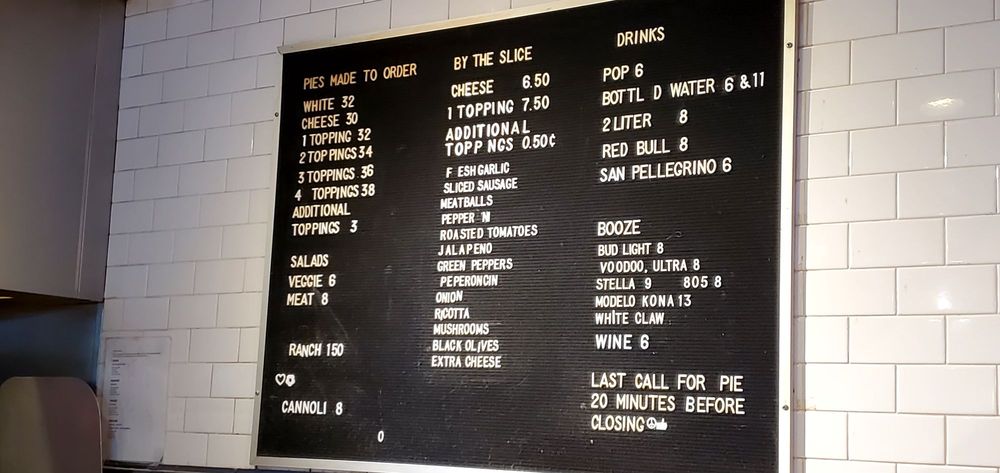 PIES MADE TO ORDER
WHITE 32
CHEESE 30
1 TOPPING 32
2 TOPPINGS 34
3 TOPPINGS 36
4 TOPPINGS 38
ADDITIONAL
TOPPINGS 3
SALADS
VEGGIE 6
MEAT 8
RANCH 150
♡✪
CANNOLI 8
0
BY THE SLICE
CHEESE 6.50
1 TOPPING 7.50
ADDITIONAL
TOPP NGS 0.50¢
F ESH GARLIC
SLICED SAUSAGE
MEATBALLS
PEPPER 'NI
ROASTED TOMATOES
JALAPENO
GREEN PEPPERS
PEPERONCIN
ONION
RICOTTA
MUSHROOMS
BLACK OLIVES
EXTRA CHEESE
DRINKS
POP 6
BOTTL D WATER 6 & 11
2 LITER 8
RED BULL 8
SAN PELLEGRINO 6
BOOZE
BUD LIGHT 8
VOODOO, ULTRA 8
STELLA 9 805 8
MODELO KONA 13
WHITE CLAW
WINE 6
LAST CALL FOR PIE
20 MINUTES BEFORE
CLOSING ☮👍